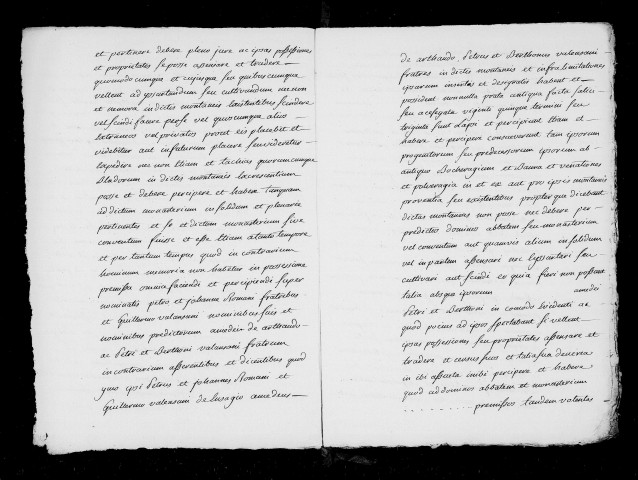 et pertinere debere pleno jure ac ipsas possessiones
et proprietates se posse assensare et tradere
quomodocumque et cujusque seu quibuscumque
vellent ad ipsartandum seu cultivandum nec non
et nemora in dictis montaneis existentibus scindere
vel scindi facere per se vel quocumque alios
extraneos vel privatos prout eis placebit et
videbitur aut in futurum placere seu videretur
expedire nec non etiam et tachias quorumcumque
Bladorum in dictis montaneis excrescentium
posse et debere percipere et habere tanquam
ad dictum monasterium in solidum et plenarie
pertinentes et se et dictum monasterium sive
conventum fuisse et esse etiam a tanto tempore
et per tantum tempus quod in contrarium
hominum memoria non habetur in possessione
premissa omnia faciendi et percipiendi super
nominatis petro et johanne Romani fratribus
et Guillermo valansani nominibus suis et
nominibus predictorum amedei de arthaudo
ac Petri et Berthoni valansani fratrum
in contrarium asserentibus et dicentibus quod
quis ipsi Petrus et johannes Romani et
Guillermus valansani de lusagio amedeus
de arthaudo, Petrus et Berthonus valansani
fratres in dictis montaneis et infra limitationes
ipsarum insertas et designatas habent et
possident nonnulla prata antiqua facta falcis
seu assegata viginti quinque terminis seu
triginta sunt elapsi et percipiunt etiam et
habere et percipere consueverunt tam ipsorum
progenitorum seu predecessorum ipsorum ab
antiquo Bocheragium et Banna et venationes
et pulveragia in et ex aut pro ipsis montaneis
proventia seu existentibus propter que dicebant
dictas montaneas non posse nec debere per
predictos dominos abbatem seu monasterium
vel conventum aut quamvis alium in solidum
vel in partem assensari nec expartari seu
cultivari aut scindi ce quia fieri non possent
talia absque ipsorum amedei
Petri et Berthoni in comodo evidenti ac
quod pocius ad ipsos spectabant se vellent
ipsas possessiones seu proprietates assensare et
tradere et census suos et talia sua deverea
in ibi assueta inibi percipere et habere
quod ad dominos abbatem et monasterium
premissos tandem volentes